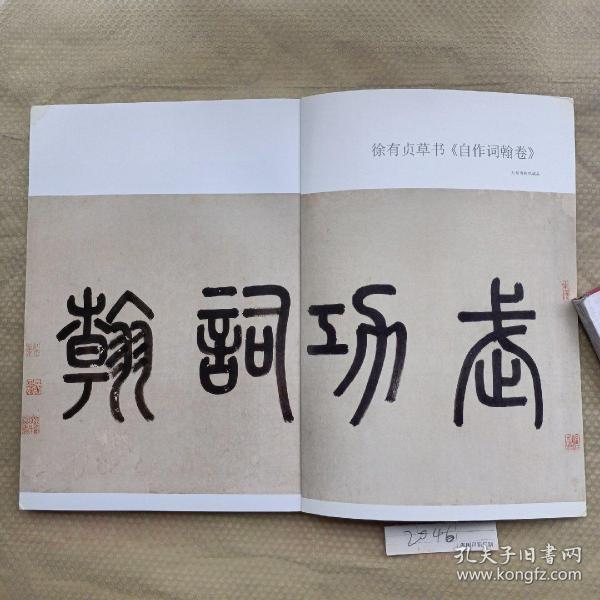 徐有贞草书《自作词翰卷》
武功詞翰
2546
孔夫子旧书网
www.kongfz.com